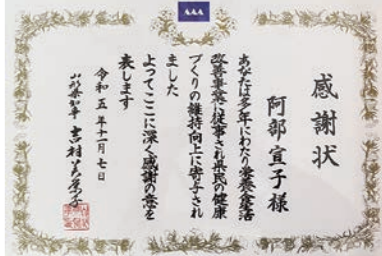 AAA
感謝状
阿部宣子様
あなたは多年にわたり栄養食生活
改善事業に従事され県民の健康
づくりの維持向上に寄与され
ました
よってここに深く感謝の意を
表します
令和五年十一月七日
山形県知事 吉村美栄子